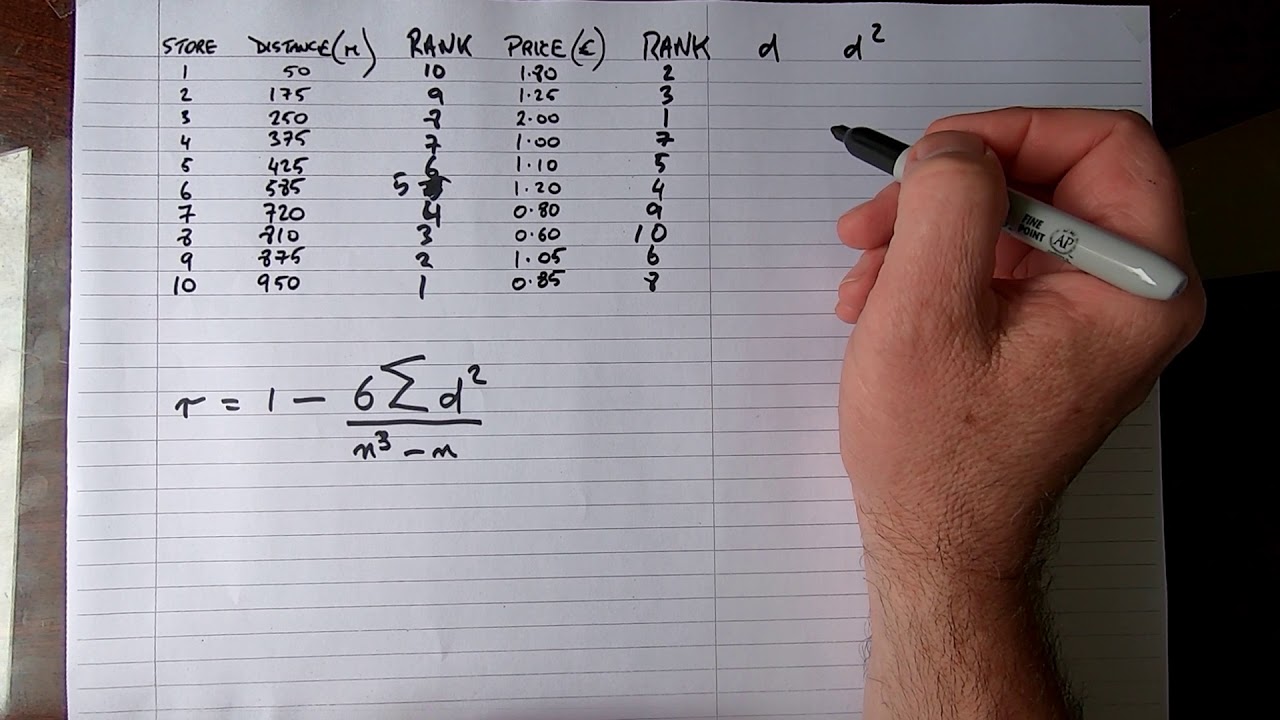 STORE DISTANCE(m) RANK PRICE(€) RANK d d²
1 50 10 1.80 2
2 175 9 1.25 3
3 250 8 2.00 1
4 375 7 1.00 7
5 425 6 1.10 5
6 585 5 1.20 4
7 720 4 0.80 9
8 810 3 0.60 10
9 875 2 1.05 6
10 950 1 0.85 8
r = 1 - 6∑d²
n³ - n
FINE POINT AP